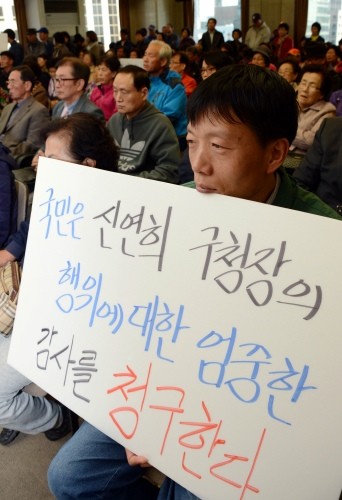 국민은 신연희 구청장의
행위에 대한 엄중한
감사를 청구한다